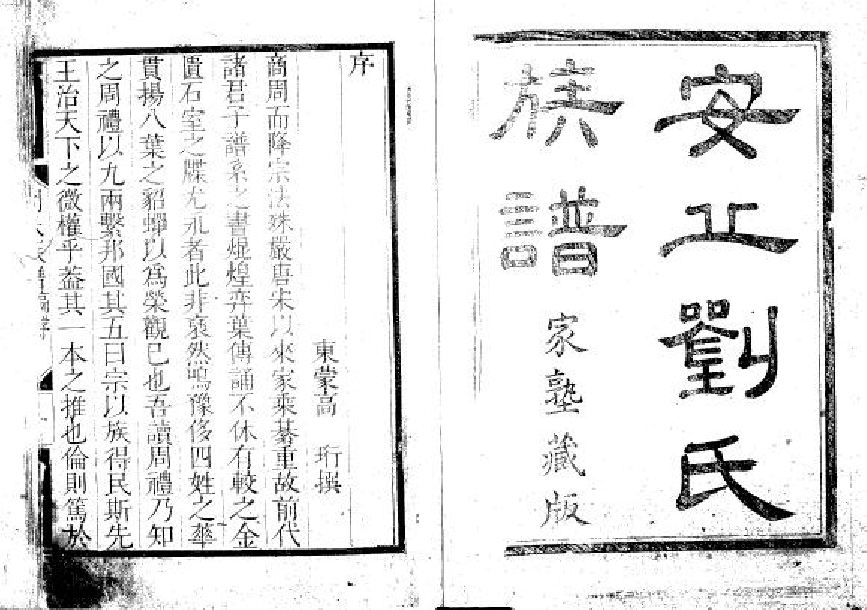 安丘劉氏
族譜
家塾藏版
序
東蒙高　珩撰
商周而降宗法殊嚴唐宋以來家乘綦重故前代
諸君子譜系之書焜煌弈葉傳誦不休有較之金
匱石室之牒尤永者此非裒然鳴豫侈四姓之華
貫揚八葉之貂蟬以為榮觀已也吾讀周禮乃知
之周禮以九兩繫邦國其五曰宗以族得民斯先
王治天下之微權乎葢其一本之推也倫則篤於